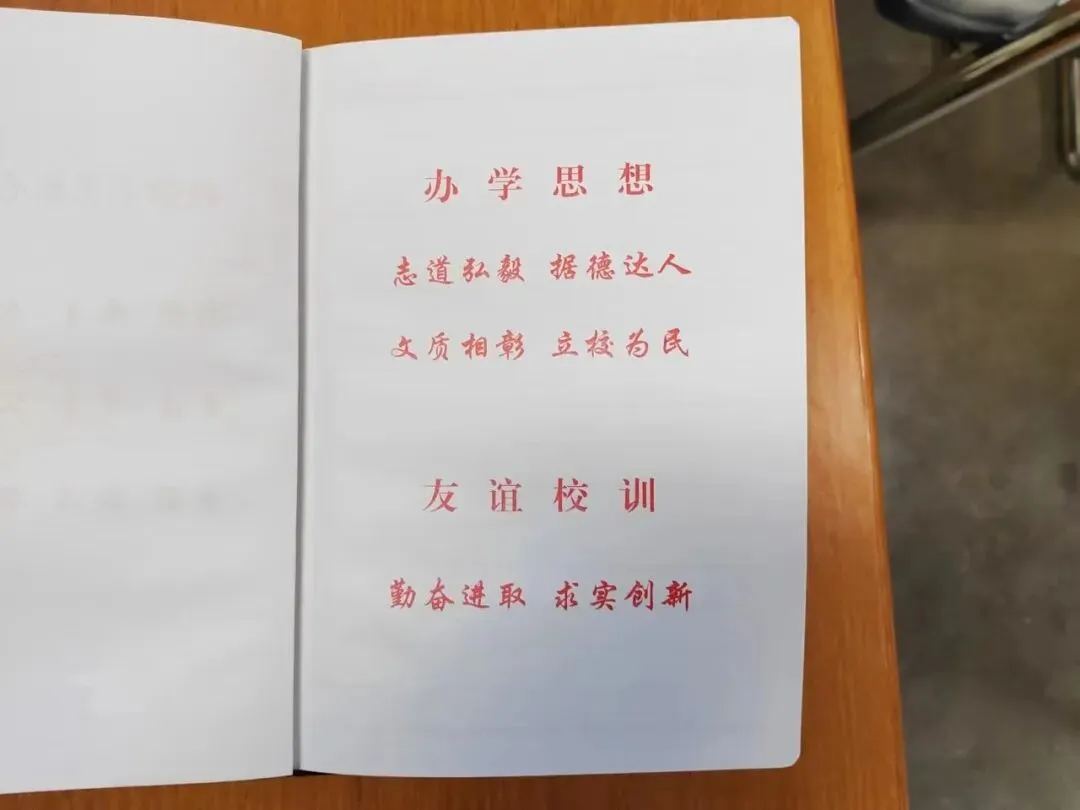 办学思想
志道弘毅 据德达人
文质相彰 立校为民
友谊校训
勤奋进取 求实创新